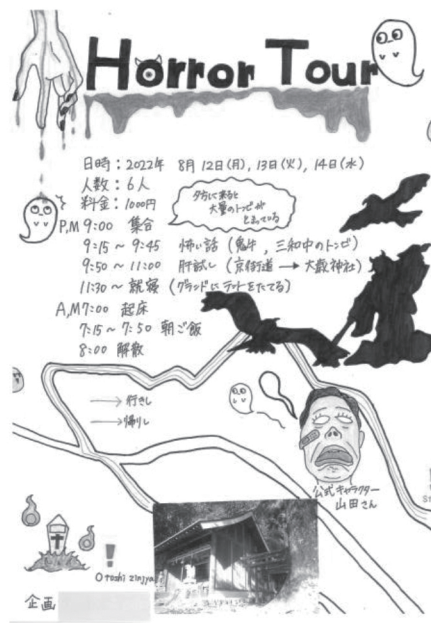 Horror Tour
日時：2022年 8月12日(月),13日(火),14日(水)
人数：6人
料金：1000円
夕方に来ると
大量のトンビが
とまっている
P.M 9:00 集合
9:15～9:45 怖い話(鬼牛,三和中のトンビ)
9:50～11:00 肝試し(京街道→大歳神社)
11:30～就寝(グランドにテントをたてる)
A,M 7:00 起床
7:15～7:50 朝ご飯
8:00 解散
→行きし
→帰りし
公式キャラクター
山田さん
Otoshi zinjya
企画